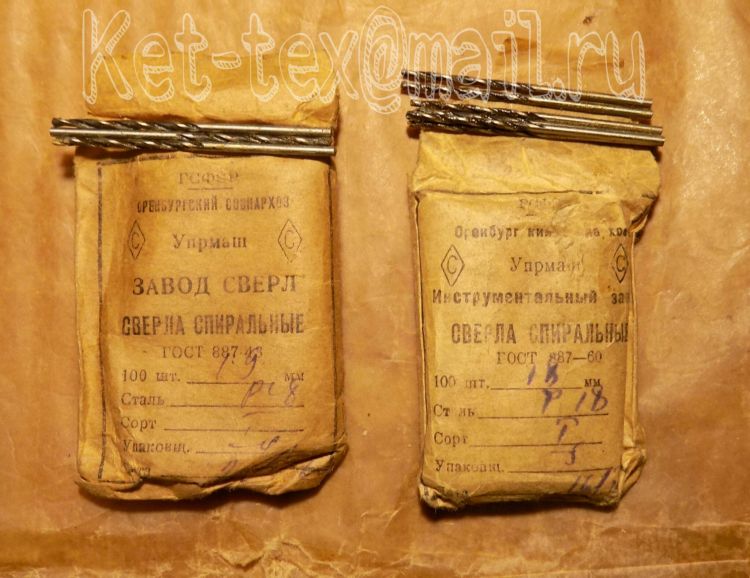 Ket-tex@mail.ru
РСФСР
ОРЕНБУРГСКИЙ СОВНАРХОЗ
С Упрмаш С
ЗАВОД СВЕРЛ
СВЕРЛА СПИРАЛЬНЫЕ
ГОСТ 887-43
100 шт. 1,9 мм
Сталь Р18
Сорт
Упаковщ.
Оренбург
С Упрмаш С
Инструментальный зав
СВЕРЛА СПИРАЛЬНЫЕ
ГОСТ 887—60
100 шт. 1,8 мм
Сталь Р 18
Сорт I
Упаковщ. 5